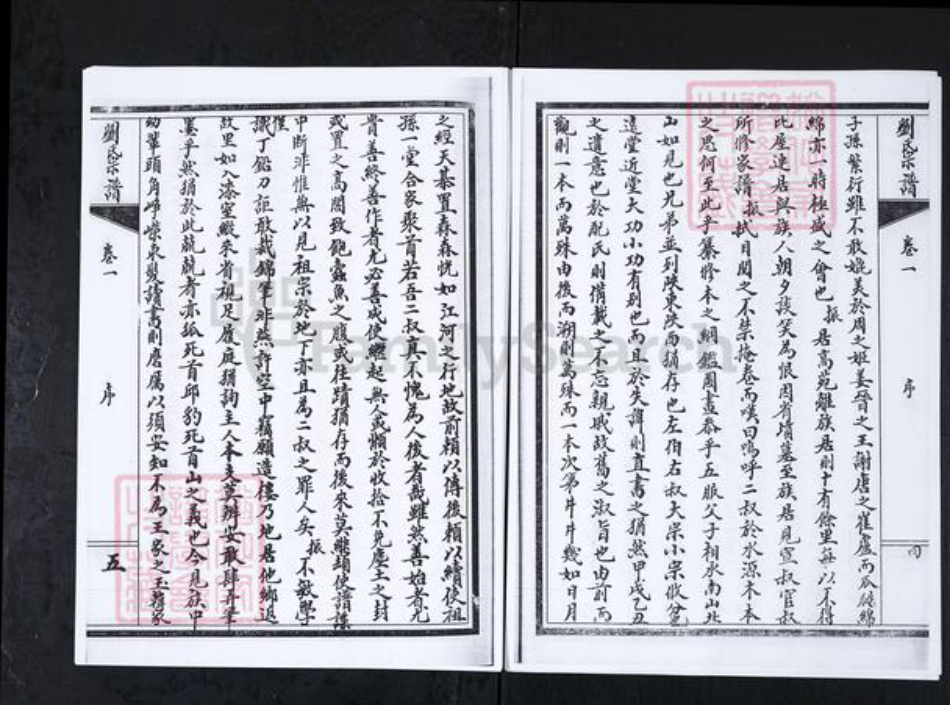 劉氏宗譜
卷一
序
四
子孫繁衍雖不敢媲美於周之姬姜晉之王謝唐之崔盧而瓜瓞綿
綿亦一時極盛之會也振居高苑離族居則十有餘里每以不得
比屋連居與族人朝夕談笑為恨因省墳墓至族居見宣叔官叔
所修家譜振拭目閱之不禁掩卷而嘆曰嗚呼二叔於水源木本
之思何至此乎纂修本之綱鑑周盡恭乎五服父子相承南山北
山如見也兄弟並列陝東陝西猶存也左伯右叔大宗小宗收
遠堂近堂大功小功有別也而且於失諱則直書之猶然甲戌乙丑
之遺意也於配氏則備載之不忘親戚故舊之淑旨也由前而
觀則一本而萬殊由後而溯則萬殊而一本次第井井幾如日月
之經天碁置森森恍如江河之行地故前賴以傳後賴以續使祖
孫一堂合家聚首若吾二叔真不愧為人後者哉雖然善始者尤
貴善終善作者尤必善成使繼起無人或懶於收拾不免塵土之封
或置之高閣致飽蠹魚之腹或往蹟猶存而後來莫續頓使譜牒
中斷非惟無以見祖宗於地下亦且為二叔之罪人矣振不敏學
慚識丁鉛刀詎敢裁錦筆非燕許空中竊願造樓乃地居他鄉返
故里如入漆室縱來者視足履庭猶詢主人本支莫辨安敢肆弄筆
墨乎然猶於此兢兢者亦狐死首邱豹死首山之義也今見族中
幼輩頭角崢嶸束髮讀書則磨厲以須安知不為王家之玉蔣家
劉氏宗譜
卷一
序
五
FamilySearch